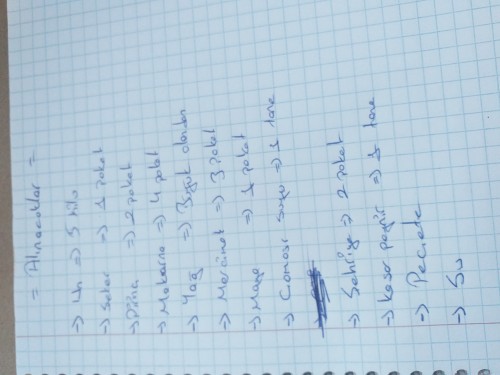 = Alınacaklar =
-> Un => 5 kilo
-> Şeker => 1 paket
-> Pirinç => 2 paket
-> Makarna => 4 paket
-> Yağ => olanlar
-> Mercimek => 3 paket
-> Maya => 1 paket
-> Çamaşır suyu => 1 tane
-> Şehriye => 2 paket
-> Kaşar peynir => 1 tane
-> Peçete
-> Su